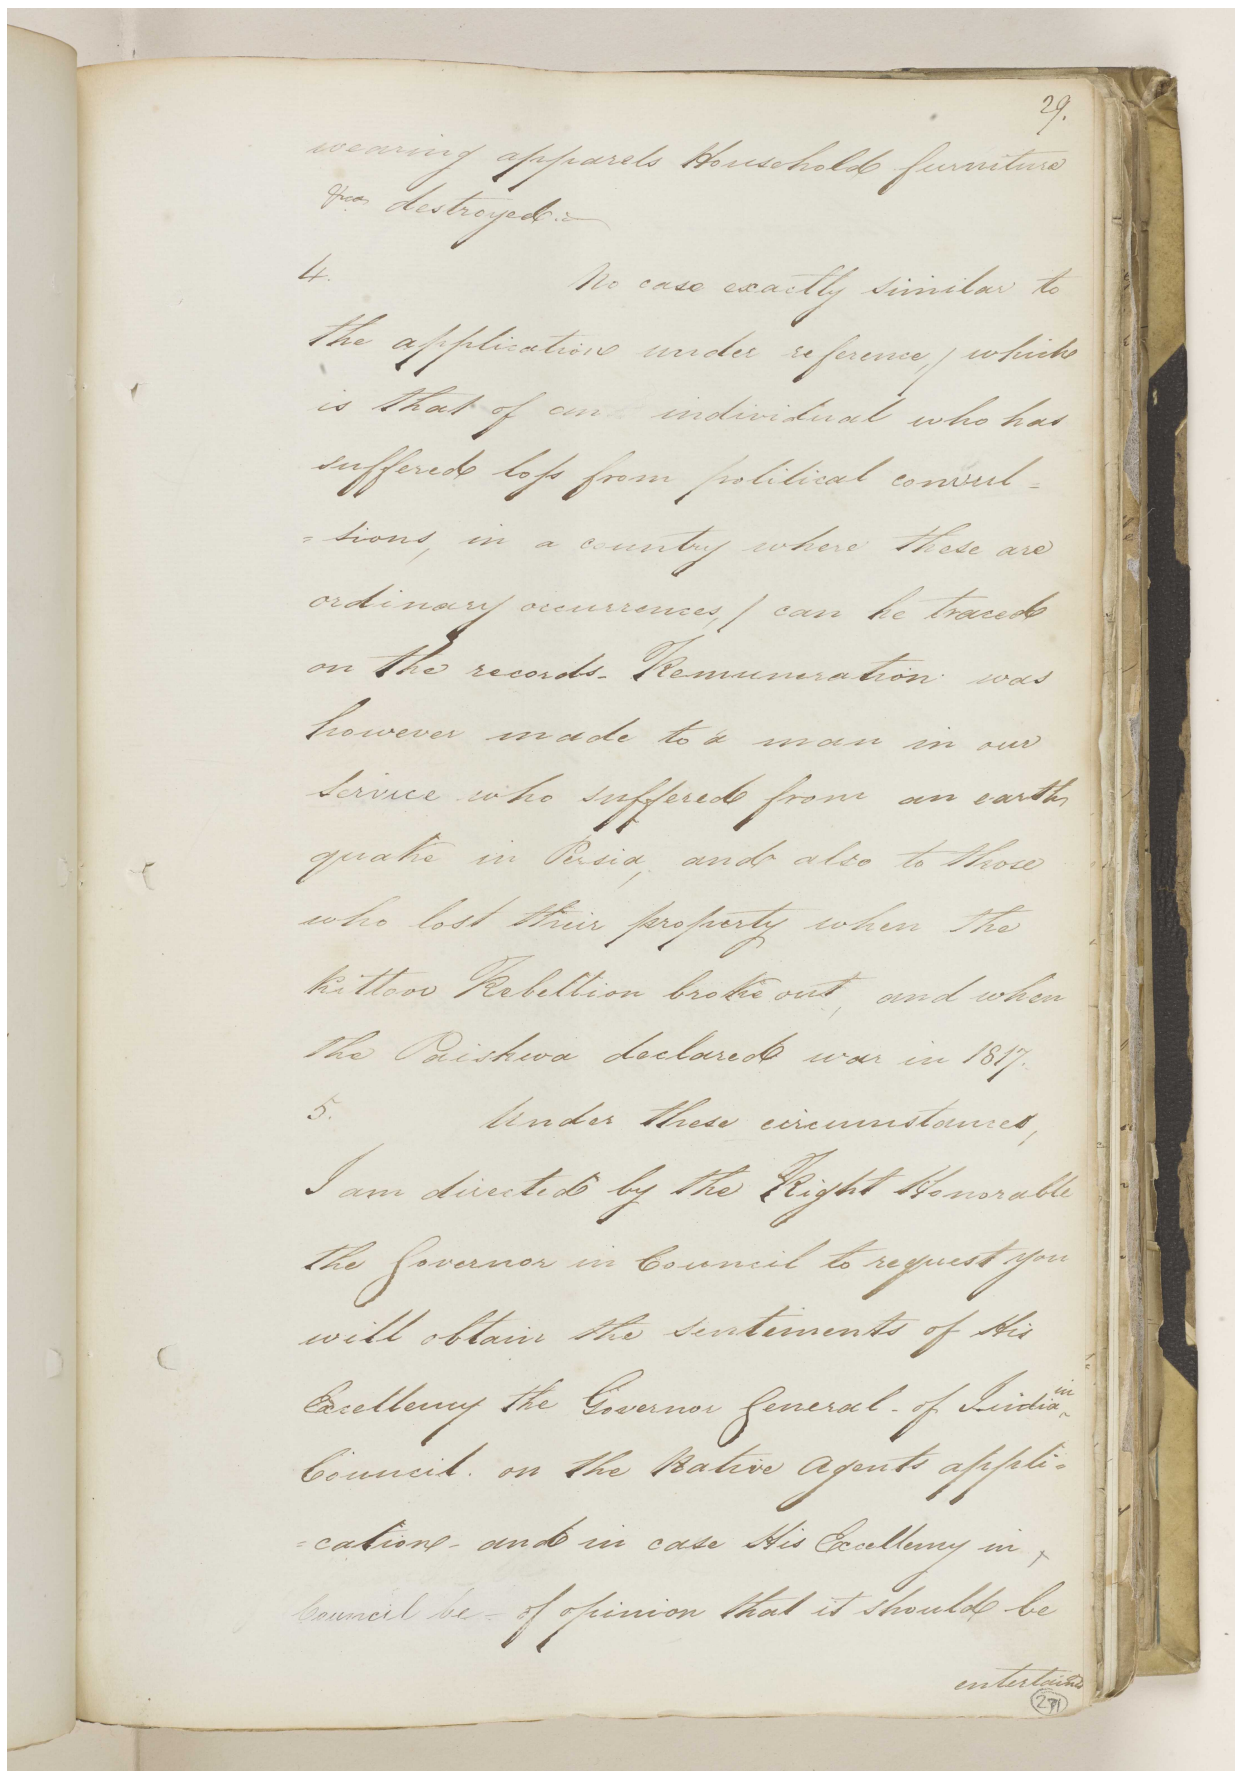 29.
wearing apparels Household furniture
&ca destroyed.=
4. No case exactly similar to
the application under reference, / which
is that of an individual who has
suffered loss from political convul=
=sions, in a country where these are
ordinary occurrences, / can be traced
on the records. Remuneration was
however made to a man in our
service who suffered from an earth
quake in Persia, and also to those
who lost their property when the
Kittoor Rebellion broke out, and when
the Paishwa declared war in 1817.
5. Under these circumstances,
I am directed by the Right Honorable
the Governor in Council to request you
will obtain the sentiments of His
Excellency the Governor General - of India in
Council. on the Native Agents appli=
=cation - and in case His Excellency in
Council be = of opinion that it should be
entertained